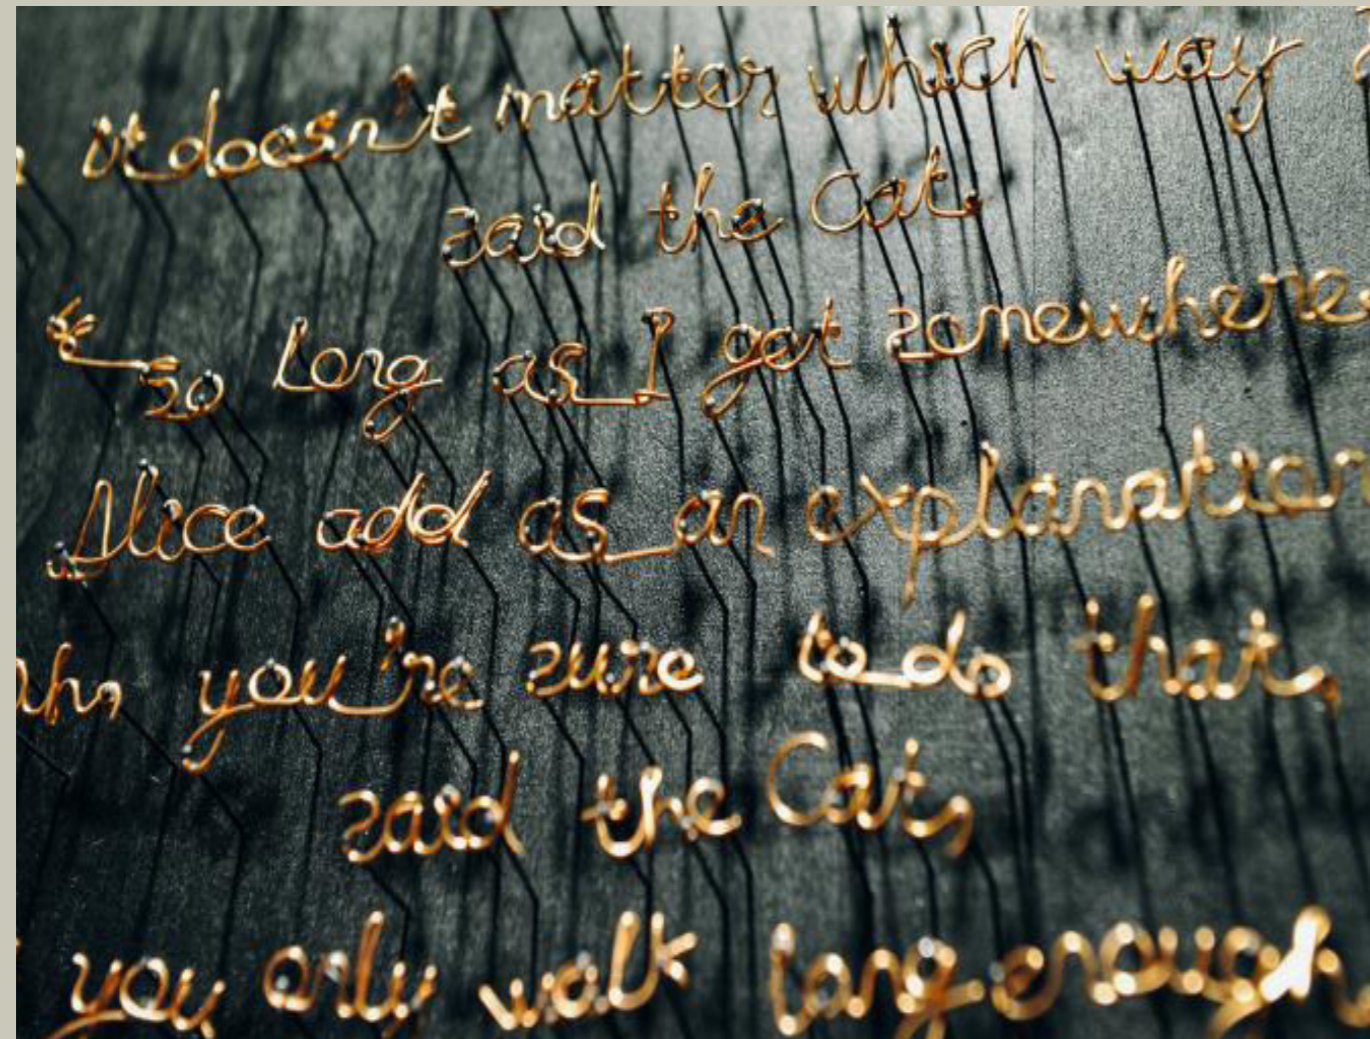 it doesn't matter which way
said the Cat.
so long as I get somewhere
Alice add as an explanation
Ah, you're sure to do that,
said the Cat,
you only walk long enough